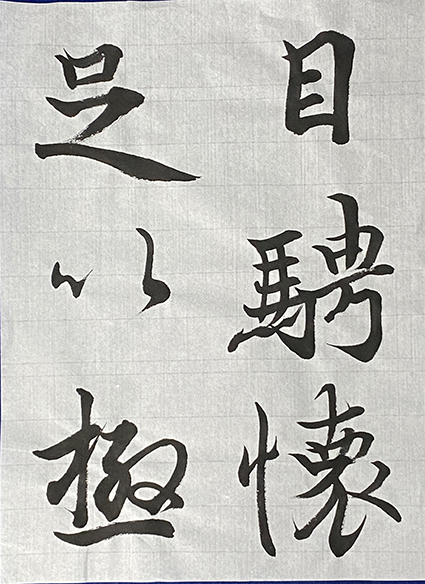 目騁懷
足以極